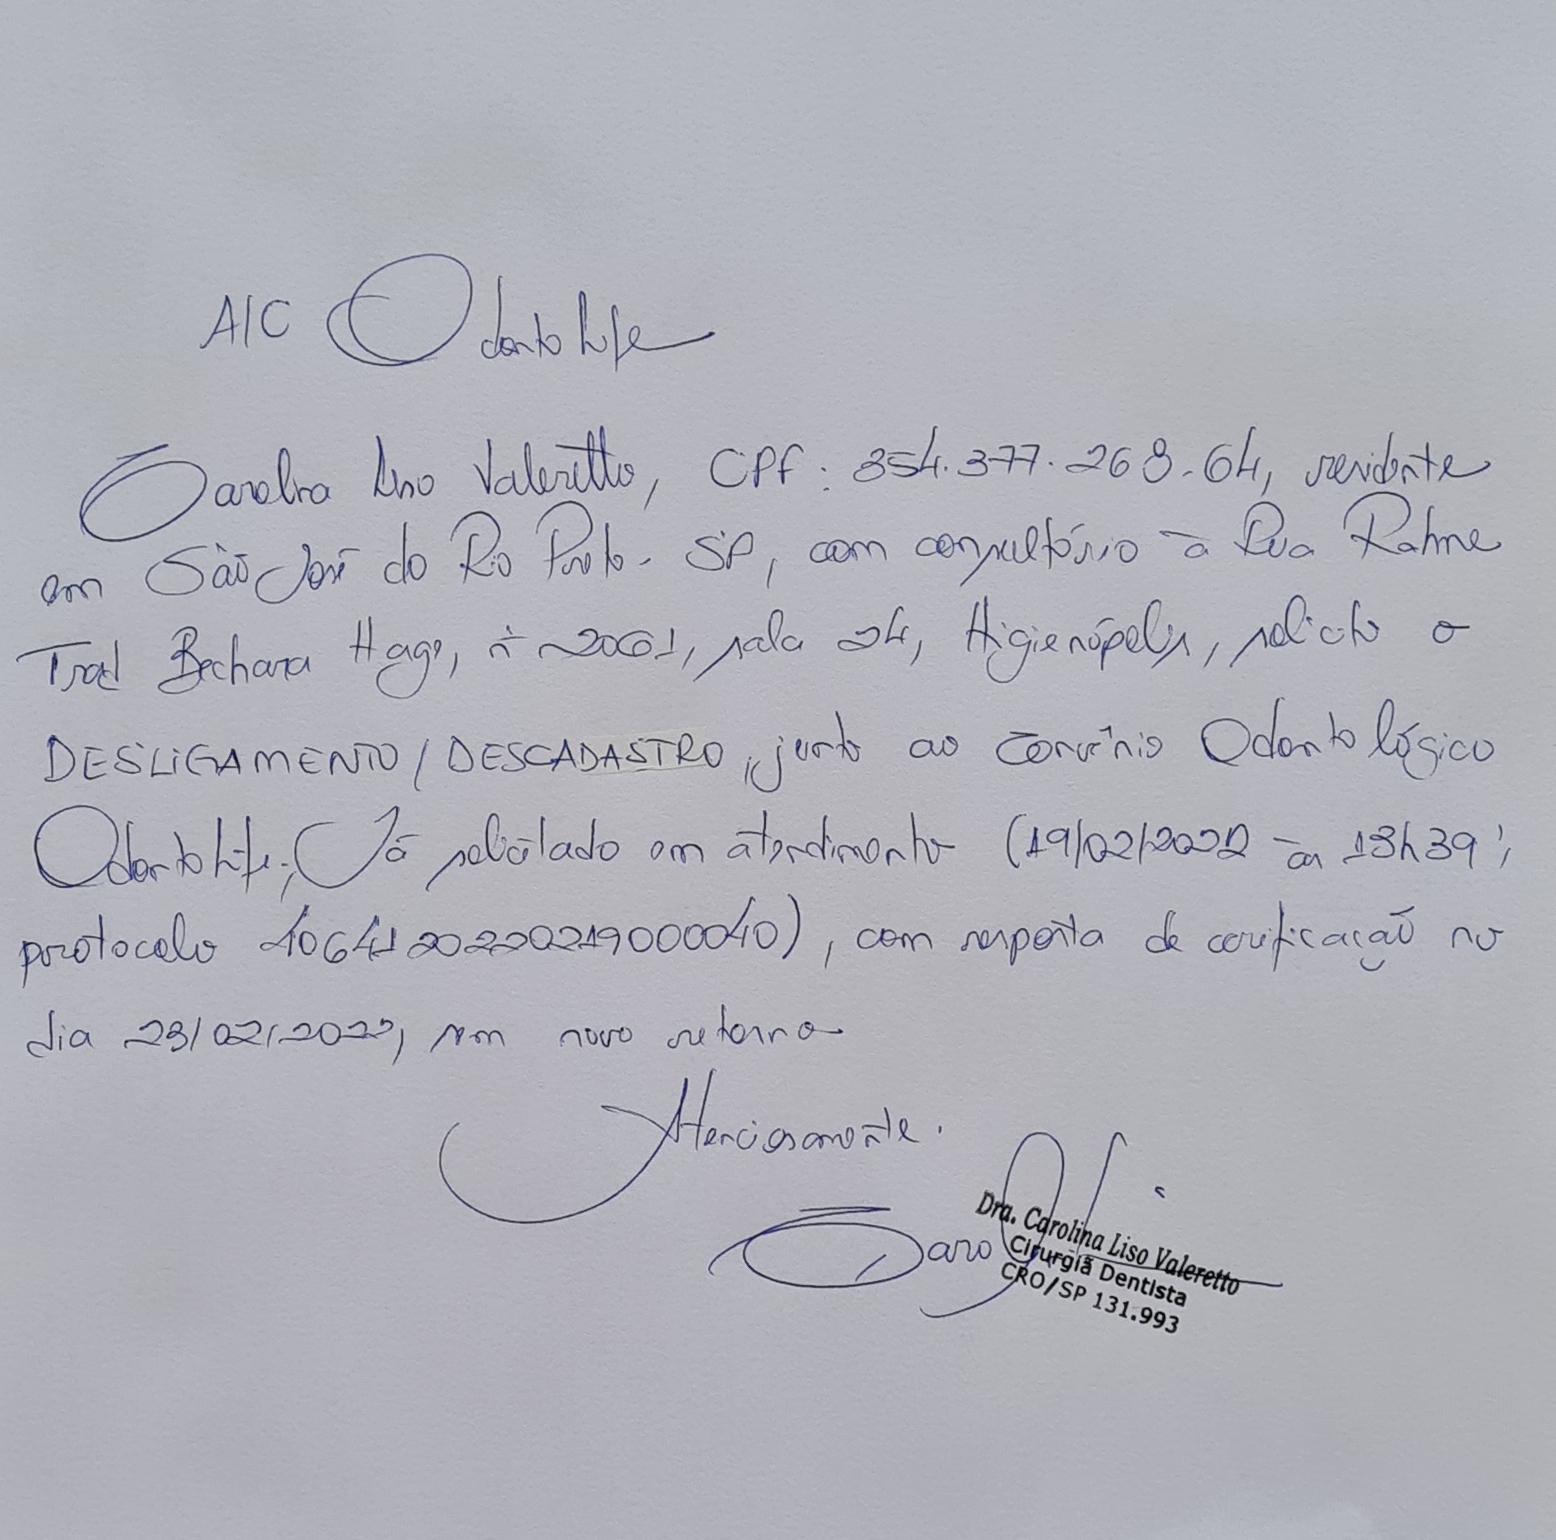 A/C OdontoLife
Carolina Liso Valeretto, CPF: 354.377.268-64, residente
em São José do Rio Preto - SP, com consultório à Rua Rahme
Trad Bechara Hage, nº 2061, sala 24, Higienópolis, solicito o
DESLIGAMENTO / DESCADASTRO, junto ao convênio Odontológico
OdontoLife; (Já solicitado em atendimento (19/02/2022 às 13h39',
protocolo 4064120220219000040), com resposta de verificação no
dia 23/02/2022, sem novo retorno
Atenciosamente.
Caro
Dra. Carolina Liso Valeretto
Cirurgiã Dentista
CRO/SP 131.993